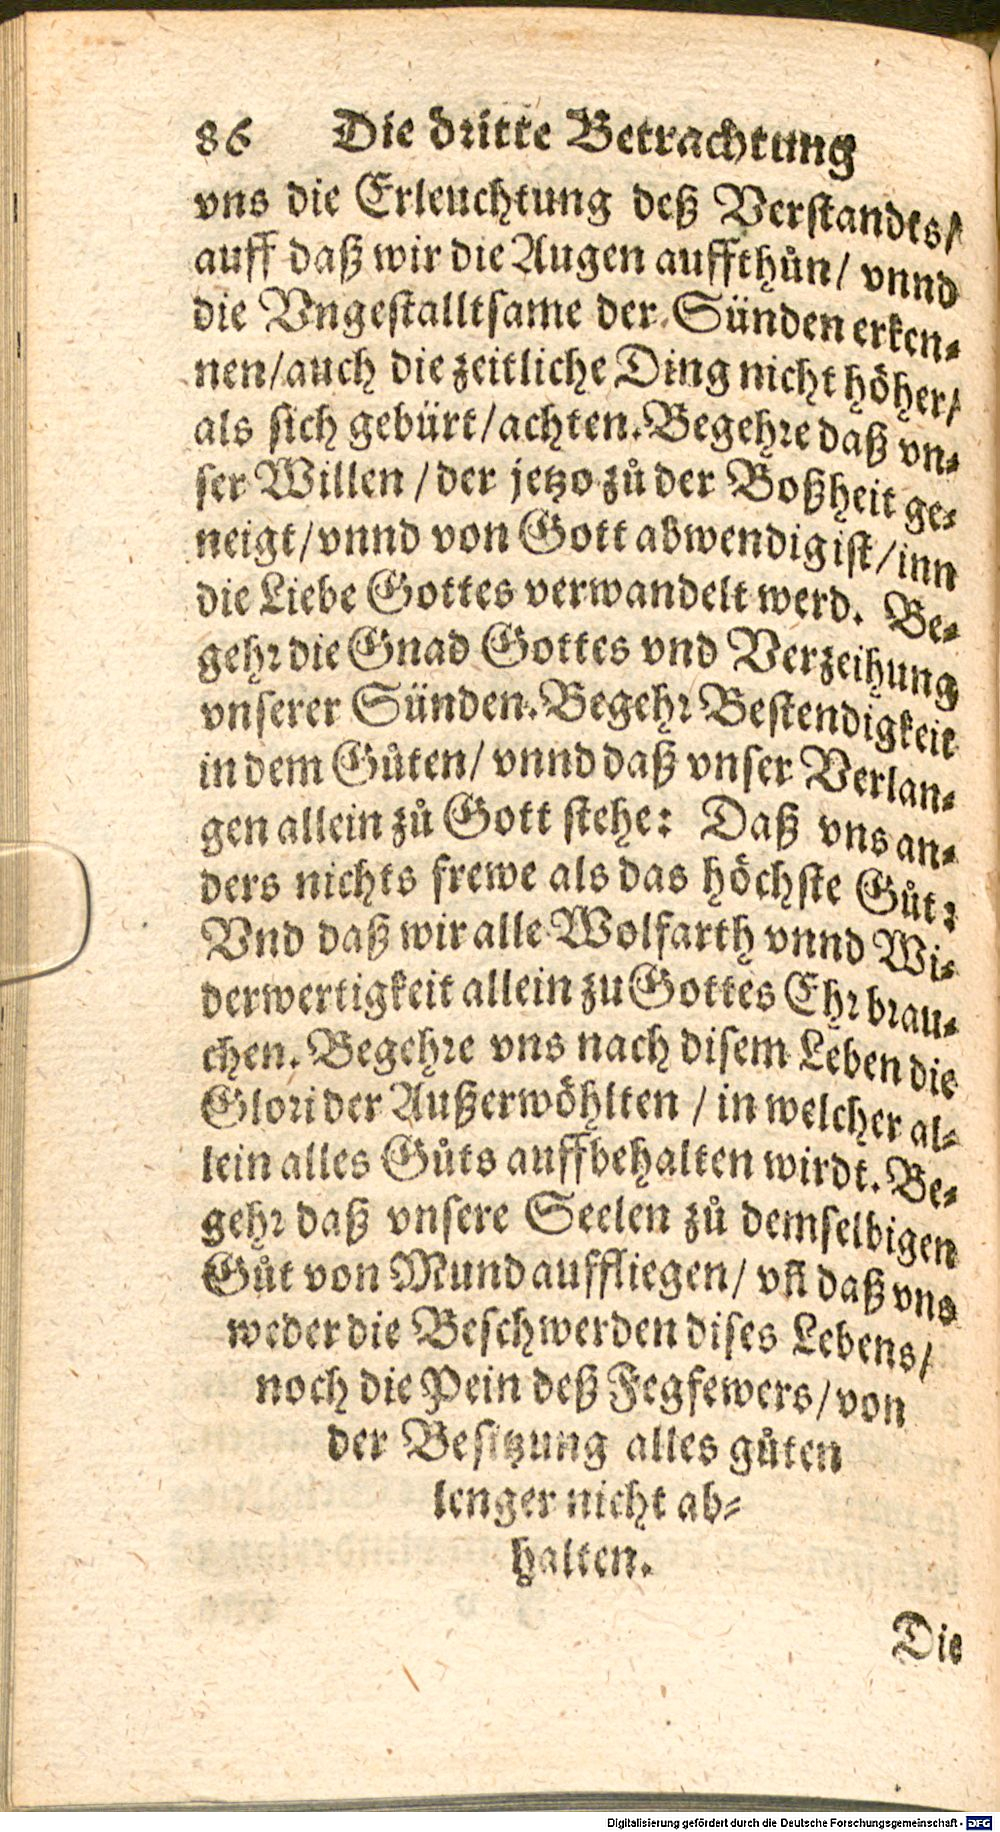 86 Die dritte Betrachtung
vns die Erleuchtung deß Verstandts/
auff daß wir die Augen auffthůn/ vnnd
die Vngestalltsame der Sünden erken⸗
nen/ auch die zeitliche Ding nicht höher/
als sich gebürt/ achten. Begehre daß vn⸗
ser Willen / der jetzo zů der Boßheit ge⸗
neigt/ vnnd von Gott abwendig ist/ inn
die Liebe Gottes verwandelt werd. Be⸗
gehr die Gnad Gottes vnd Verzeihung
vnserer Sünden. Begehr Bestendigkeit
in dem Gůten/ vnnd daß vnser Verlan⸗
gen allein zů Gott stehe: Daß vns an⸗
ders nichts frewe als das höchste Gůt:
Vnd daß wir alle Wolfarth vnnd Wi⸗
derwertigkeit allein zu Gottes Ehr brau⸗
chen. Begehre vns nach disem Leben die
Glori der Außerwöhlten / in welcher al⸗
lein alles Gůts auffbehalten wirdt. Be⸗
gehr daß vnsere Seelen zů demselbigen
Gůt von Mund auffliegen/ vñ daß vns
weder die Beschwerden dises Lebens/
noch die Pein deß Fegfewers/ von
der Besitzung alles gůten
lenger nicht ab⸗
halten.
Die
Digitalisierung gefördert durch die Deutsche Forschungsgemeinschaft - DFG